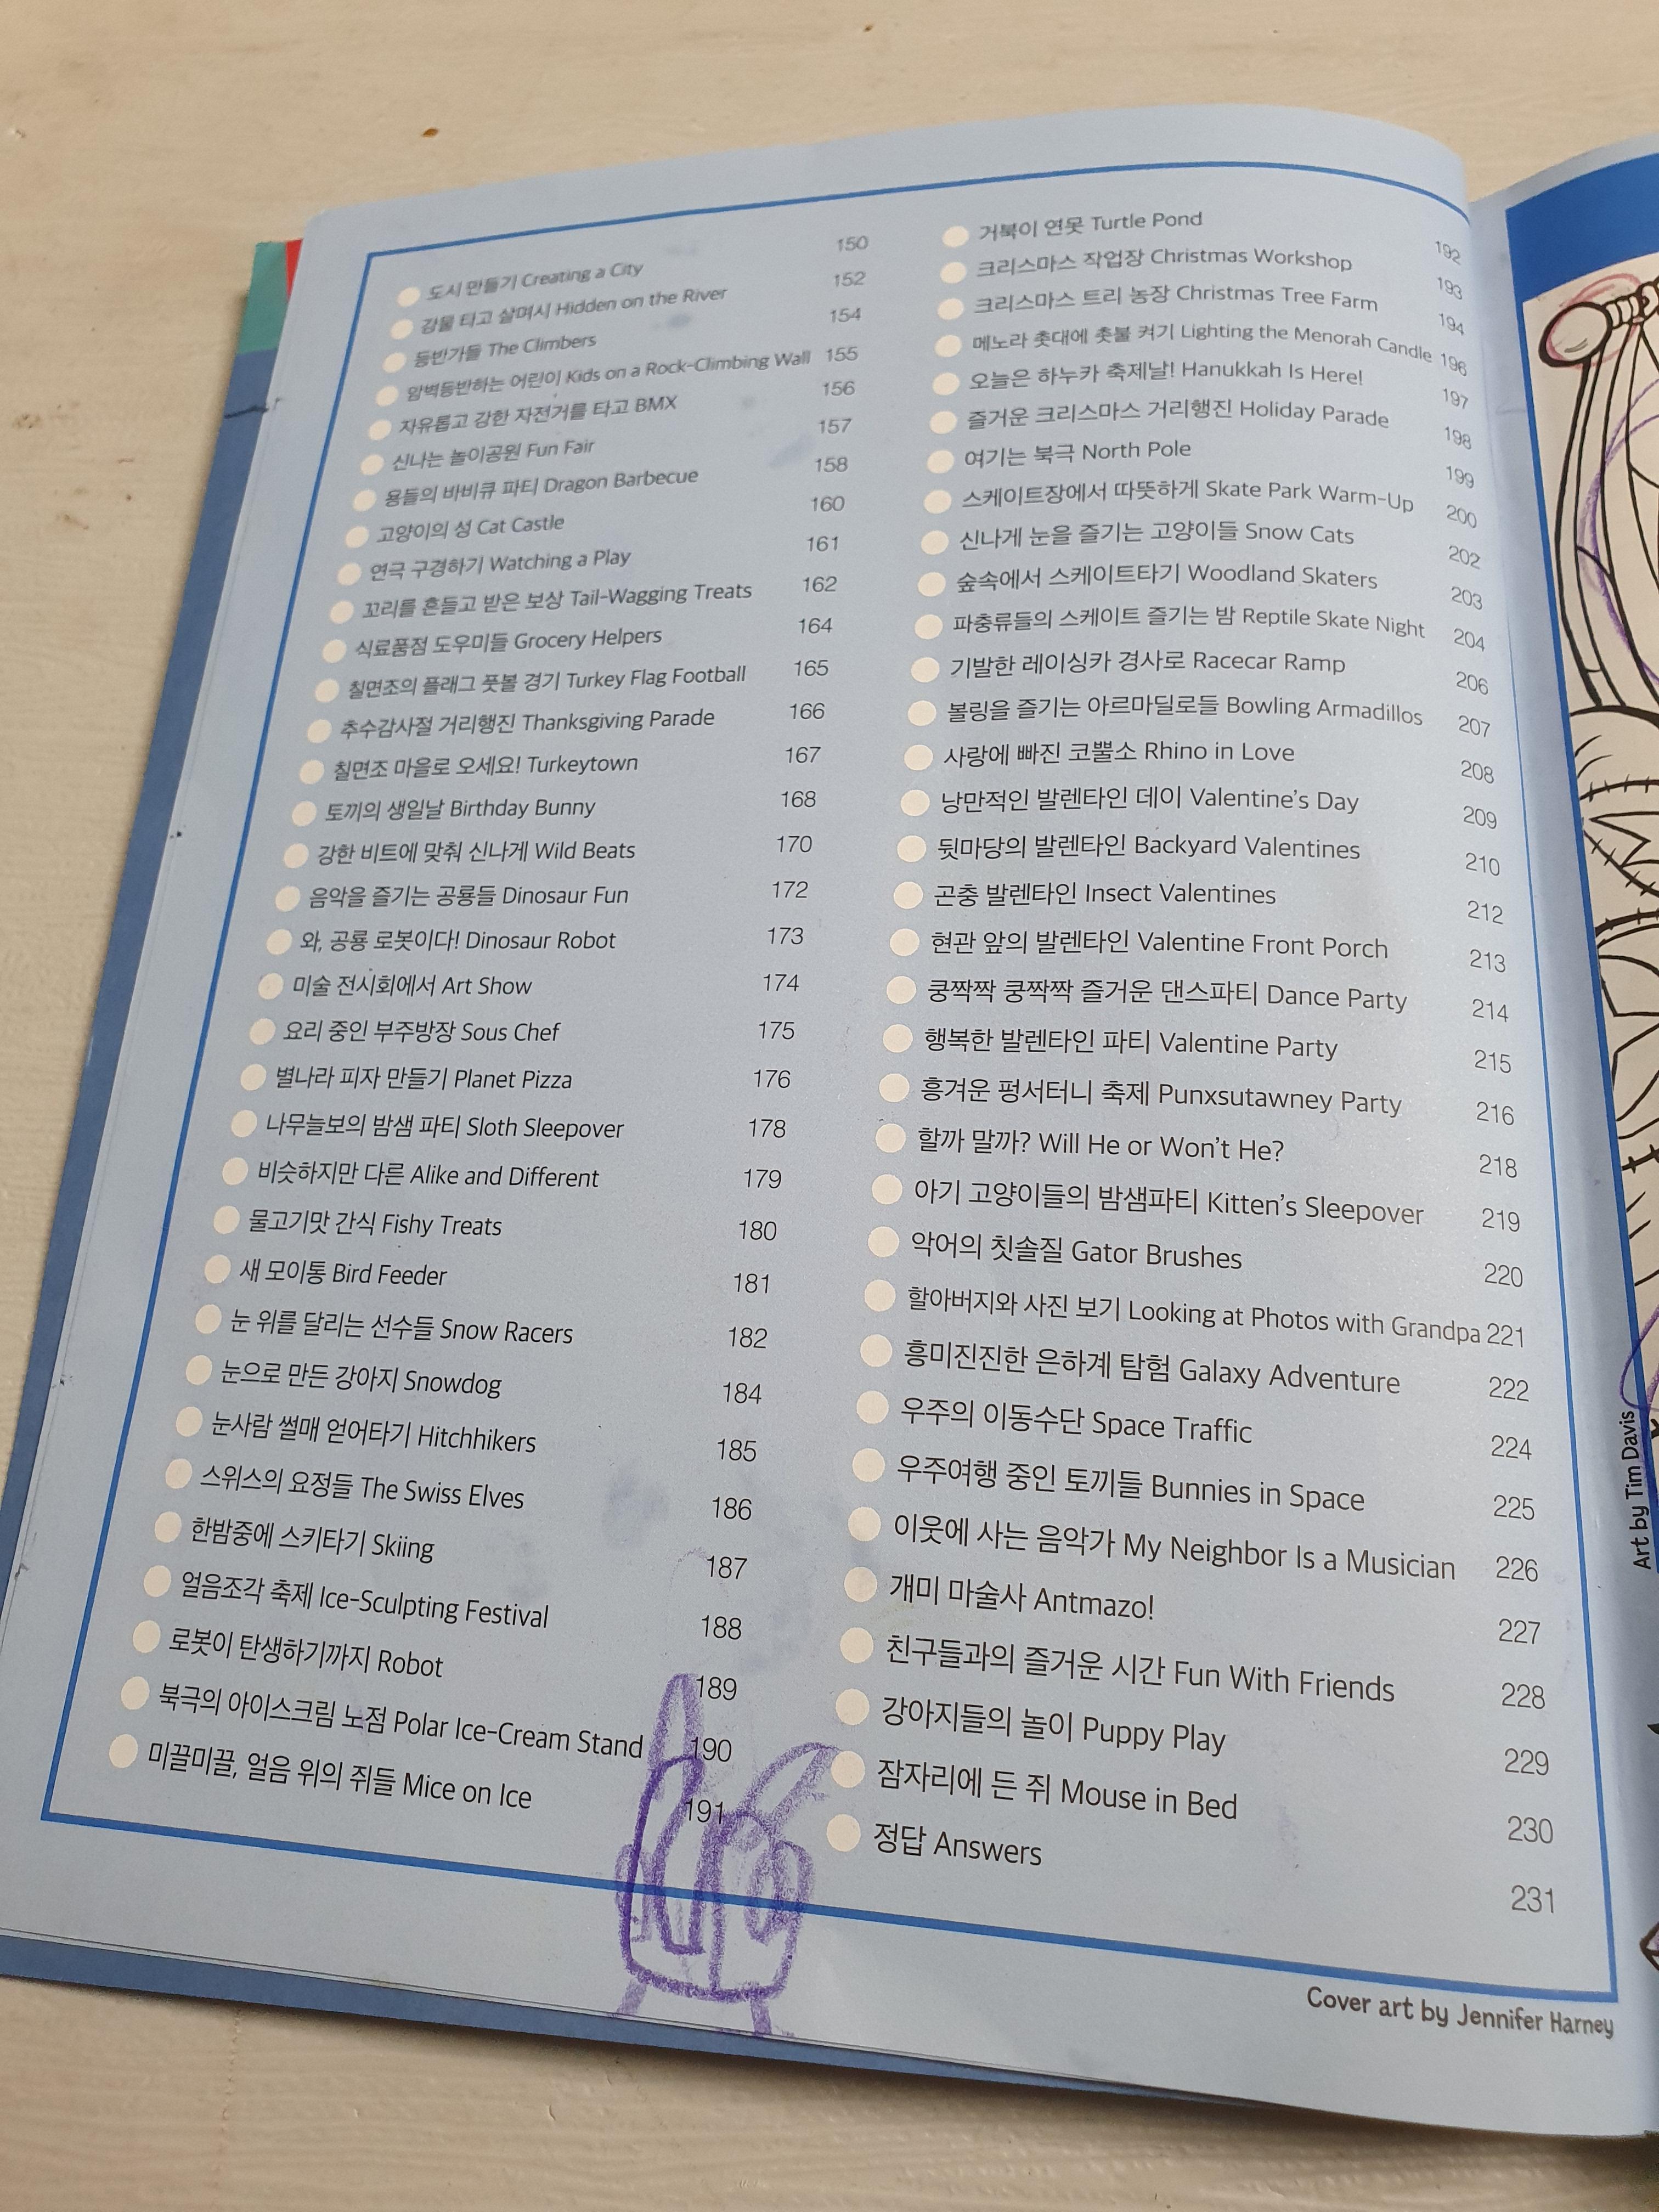 도시 만들기 Creating a City 150
강물 타고 살며시 Hidden on the River 152
등반가들 The Climbers 154
암벽등반하는 어린이 Kids on a Rock-Climbing Wall 155
자유롭고 강한 자전거를 타고 BMX 156
신나는 놀이공원 Fun Fair 157
용들의 바비큐 파티 Dragon Barbecue 158
고양이의 성 Cat Castle 160
연극 구경하기 Watching a Play 161
꼬리를 흔들고 받은 보상 Tail-Wagging Treats 162
식료품점 도우미들 Grocery Helpers 164
칠면조의 플래그 풋볼 경기 Turkey Flag Football 165
추수감사절 거리행진 Thanksgiving Parade 166
칠면조 마을로 오세요! Turkeytown 167
토끼의 생일날 Birthday Bunny 168
강한 비트에 맞춰 신나게 Wild Beats 170
음악을 즐기는 공룡들 Dinosaur Fun 172
와, 공룡 로봇이다! Dinosaur Robot 173
미술 전시회에서 Art Show 174
요리 중인 부주방장 Sous Chef 175
별나라 피자 만들기 Planet Pizza 176
나무늘보의 밤샘 파티 Sloth Sleepover 178
비슷하지만 다른 Alike and Different 179
물고기맛 간식 Fishy Treats 180
새 모이통 Bird Feeder 181
눈 위를 달리는 선수들 Snow Racers 182
눈으로 만든 강아지 Snowdog 184
눈사람 썰매 얻어타기 Hitchhikers 185
스위스의 요정들 The Swiss Elves 186
한밤중에 스키타기 Skiing 187
얼음조각 축제 Ice-Sculpting Festival 188
로봇이 탄생하기까지 Robot 189
북극의 아이스크림 노점 Polar Ice-Cream Stand 190
미끌미끌, 얼음 위의 쥐들 Mice on Ice 191
거북이 연못 Turtle Pond 192
크리스마스 작업장 Christmas Workshop 193
크리스마스 트리 농장 Christmas Tree Farm 194
메노라 촛대에 촛불 켜기 Lighting the Menorah Candle 196
오늘은 하누카 축제날! Hanukkah Is Here! 197
즐거운 크리스마스 거리행진 Holiday Parade 198
여기는 북극 North Pole 199
스케이트장에서 따뜻하게 Skate Park Warm-Up 200
신나게 눈을 즐기는 고양이들 Snow Cats 202
숲속에서 스케이트타기 Woodland Skaters 203
파충류들의 스케이트 즐기는 밤 Reptile Skate Night 204
기발한 레이싱카 경사로 Racecar Ramp 206
볼링을 즐기는 아르마딜로들 Bowling Armadillos 207
사랑에 빠진 코뿔소 Rhino in Love 208
낭만적인 발렌타인 데이 Valentine's Day 209
뒷마당의 발렌타인 Backyard Valentines 210
곤충 발렌타인 Insect Valentines 212
현관 앞의 발렌타인 Valentine Front Porch 213
쿵짝짝 쿵짝짝 즐거운 댄스파티 Dance Party 214
행복한 발렌타인 파티 Valentine Party 215
흥겨운 펑서터니 축제 Punxsutawney Party 216
할까 말까? Will He or Won't He? 218
아기 고양이들의 밤샘파티 Kitten's Sleepover 219
악어의 칫솔질 Gator Brushes 220
할아버지와 사진 보기 Looking at Photos with Grandpa 221
흥미진진한 은하계 탐험 Galaxy Adventure 222
우주의 이동수단 Space Traffic 224
우주여행 중인 토끼들 Bunnies in Space 225
이웃에 사는 음악가 My Neighbor Is a Musician 226
개미 마술사 Antmazo! 227
친구들과의 즐거운 시간 Fun With Friends 228
강아지들의 놀이 Puppy Play 229
잠자리에 든 쥐 Mouse in Bed 230
정답 Answers 231
Cover art by Jennifer Harney
Art by Tim Davis